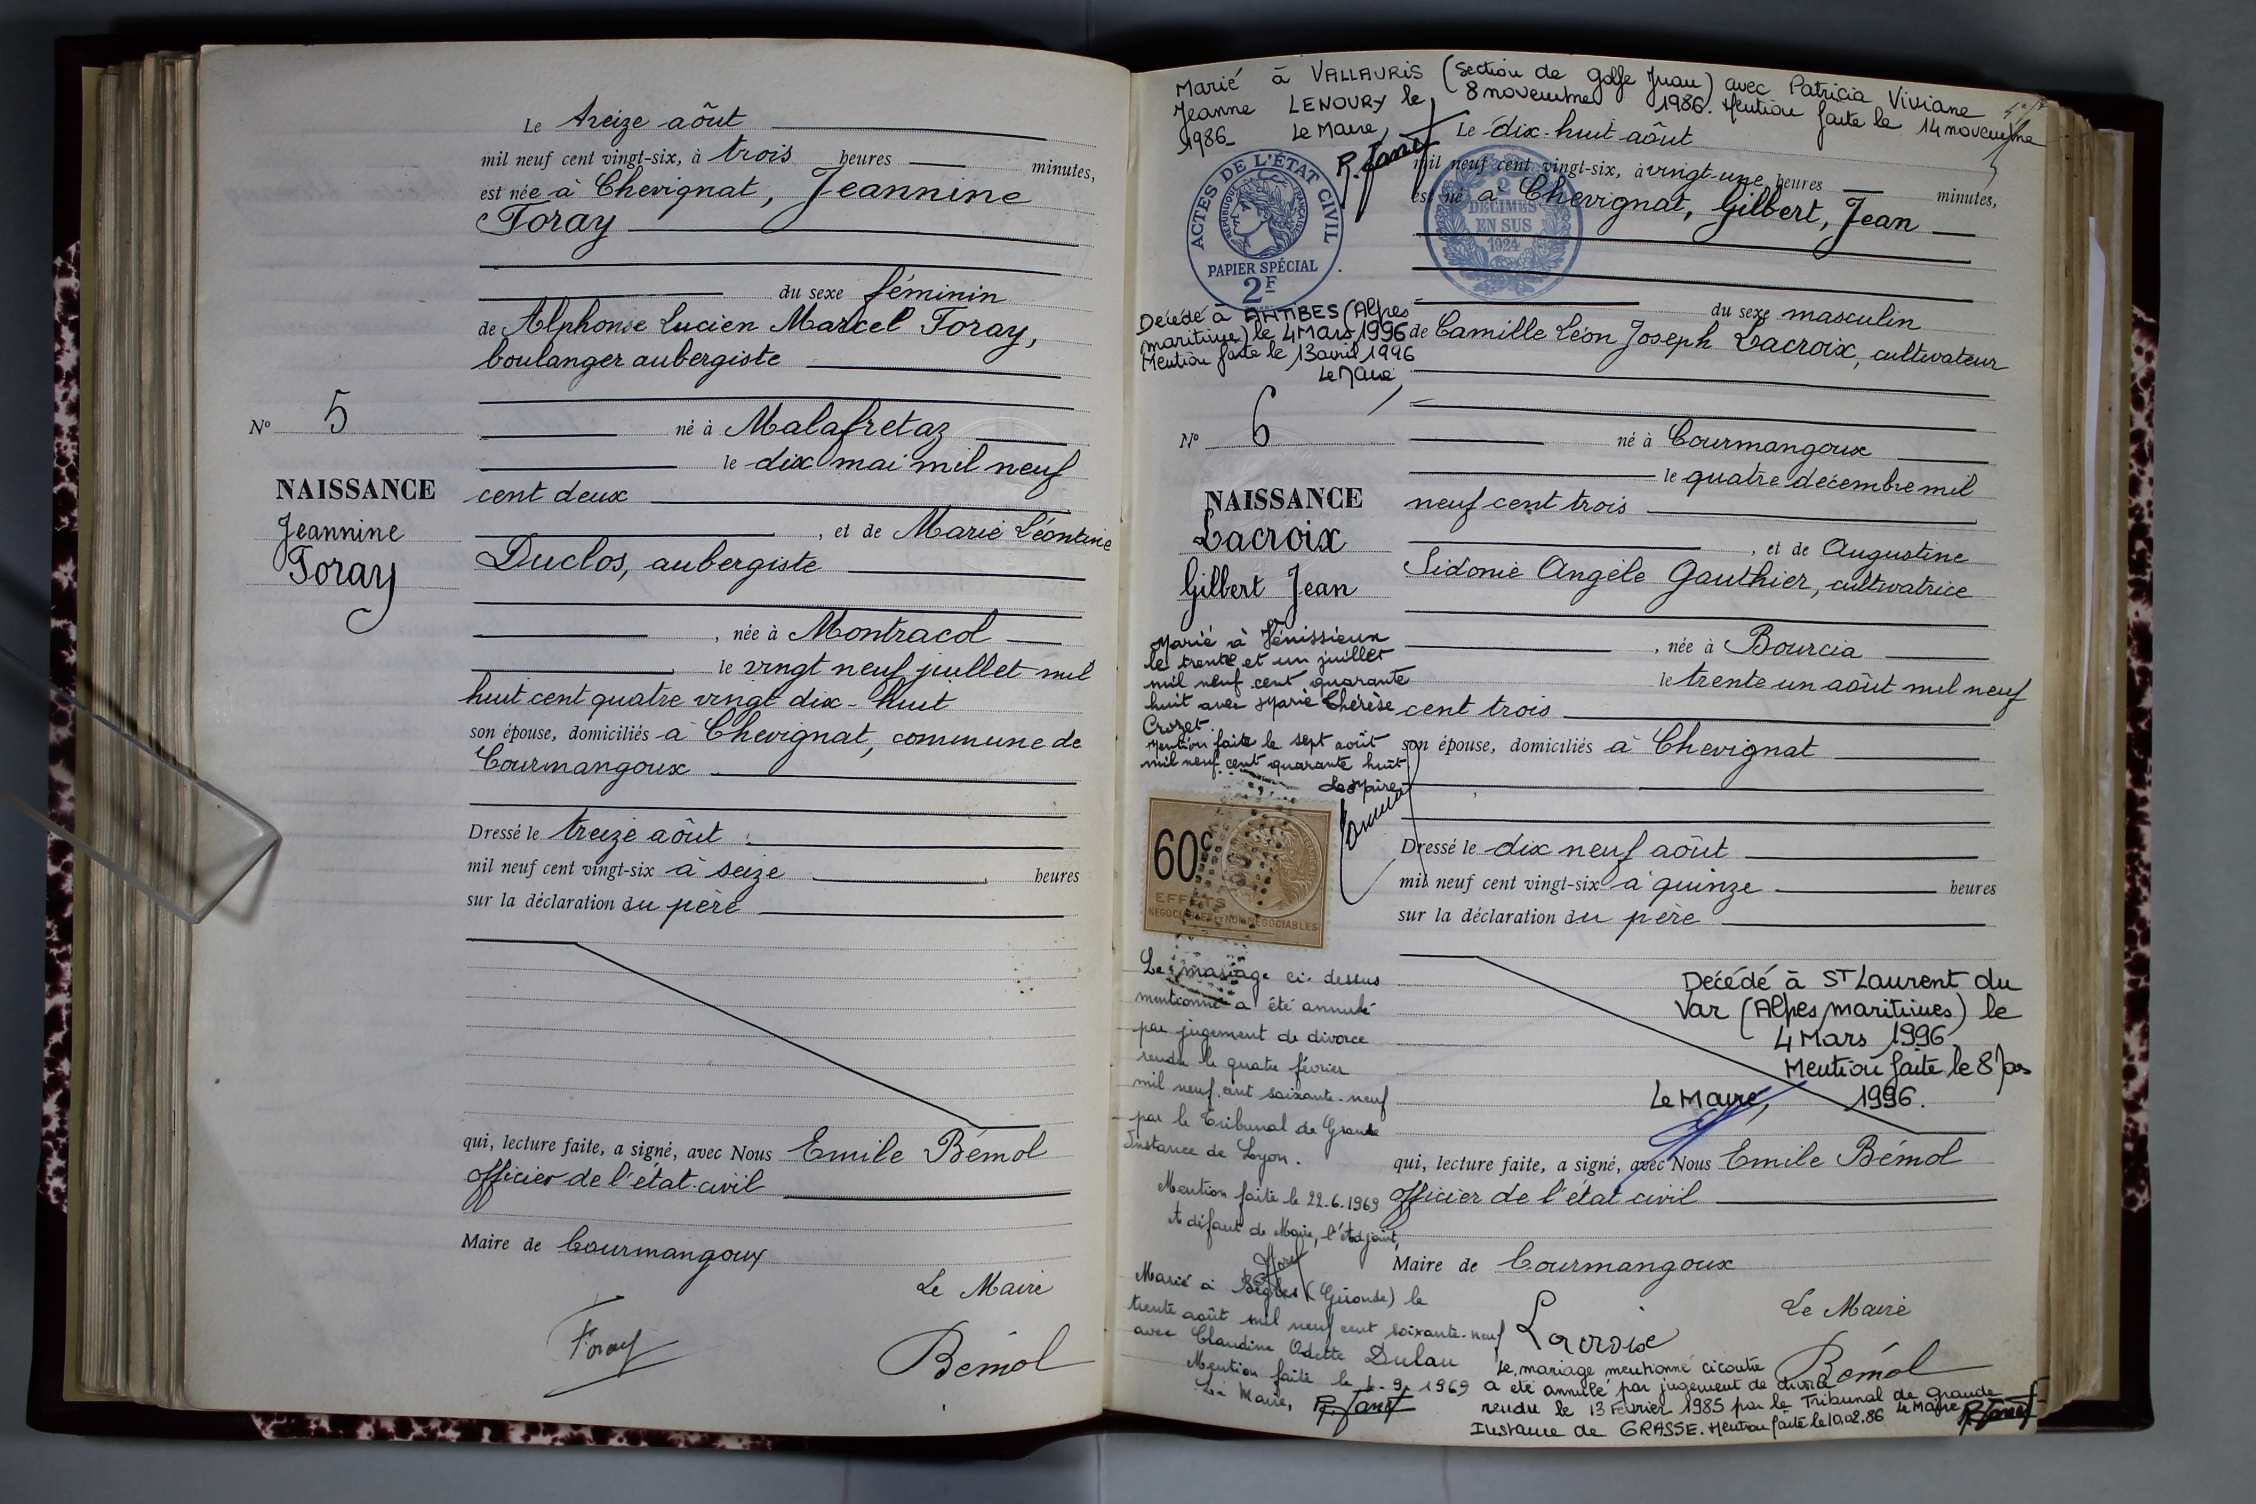 Le treize août
mil neuf cent vingt-six, à trois heures minutes,
est née à Chevignat, Jeannine
Foray
du sexe féminin
de Alphonse Lucien Marcel Foray,
boulanger aubergiste
né à Malafretaz
le dix mai mil neuf
cent deux
, et de Marie Léontine
Duclos, aubergiste
, née à Montracol
le vingt neuf juillet mil
huit cent quatre vingt dix-huit
son épouse, domiciliés à Chevignat, commune de
Courmangoux
Dressé le treize août
mil neuf cent vingt-six à seize heures
sur la déclaration du père
qui, lecture faite, a signé, avec Nous Emile Bémol
officier de l'état-civil
Maire de Courmangoux
Le Maire
Foray
Bémol
N° 5
NAISSANCE
Jeannine
Foray
Marié à VALLAURIS (section de Golfe Juan) avec Patricia Viviane
Jeanne LENOURY le 8 novembre 1986. Mention faite le 14 novembre
1986_ Le Maire,
R. Janet
Le dix-huit août
mil neuf cent vingt-six, à vingt-une heures minutes,
est né à Chevignat, Gilbert, Jean
ACTES DE L'ÉTAT CIVIL
RÉPUBLIQUE FRANÇAISE
PAPIER SPÉCIAL
2F
2
DÉCIMES
EN SUS
1924
du sexe masculin
de Camille Léon Joseph Lacroix, cultivateur
né à Courmangoux
le quatre décembre mil
neuf cent trois
, et de Augustine
Sidonie Angèle Gauthier, cultivatrice
, née à Bourcia
le trente un août mil neuf
cent trois
son épouse, domiciliés à Chevignat
Dressé le dix neuf août
mil neuf cent vingt-six à quinze heures
sur la déclaration du père
Décédé à ST Laurent du
Var (Alpes maritimes) le
4 Mars 1996
Mention faite le 8
1996.
Le Maire,
qui, lecture faite, a signé, avec Nous Emile Bémol
officier de l'état civil
Maire de Courmangoux
Le Maire
Lacroix
Bémol
Décédé à ANTIBES (Alpes
maritimes) le 4 Mars 1996
Mention faite le 13 avril 1996
Le Maire
N° 6
NAISSANCE
Lacroix
Gilbert Jean
Marié à Vénissieux
le trente et un juillet
mil neuf cent quarante
huit avec Marie Thérèse
Crozet.
Mention faite le sept août
mil neuf cent quarante huit
Le Maire
60c
EFFETS
NÉGOCIABLES ET NON NÉGOCIABLES
Le mariage ci-dessus
mentionné a été annulé
par jugement de divorce
rendu le quatre février
mil neuf cent soixante-neuf
par le Tribunal de Grande
Instance de Lyon.
Mention faite le 22-6-1969
A défaut de Maire, l'Adjoint,
Marié à Bègles (Gironde) le
trente août mil neuf cent soixante-neuf
avec Claudine Odette Dulau
Mention faite le 6-9-1969
Le Maire, R. Janet
Le mariage mentionné ci contre
a été annulé par jugement de divorce
rendu le 13 Février 1985 par le Tribunal de Grande
Instance de GRASSE. Mention faite le 10.02.86 Le Maire R. Janet